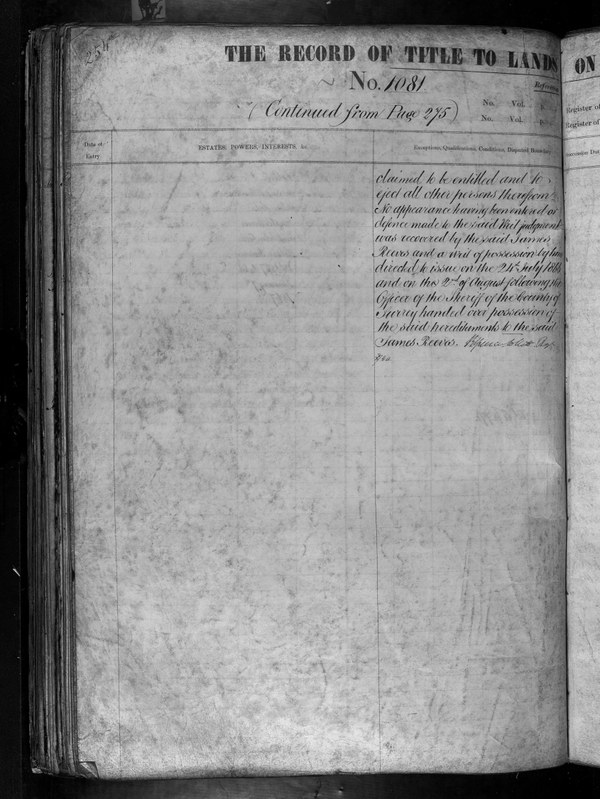 254
THE RECORD OF TITLE TO LANDS ON
No. 1081
Reference
(Continued from Page 275)
No. Vol. P.
No. Vol. P.
Register of
Register of
Date of
Entry
ESTATES, POWERS, INTERESTS, &c.
Exceptions, Qualifications, Conditions, Disputed Boundary
Succession Dut
claimed to be entitled and to
eject all other persons therefrom
No appearance having been entered or
defence made to the said Writ judgment
was recovered by the said James
Reeves and a writ of possession by law
directed to issue on the 24th July 1866
and on the 2nd of August following the
Officer of the Sheriff of the County of
Surrey handed over possession of
the said hereditaments to the said
James Reeves.